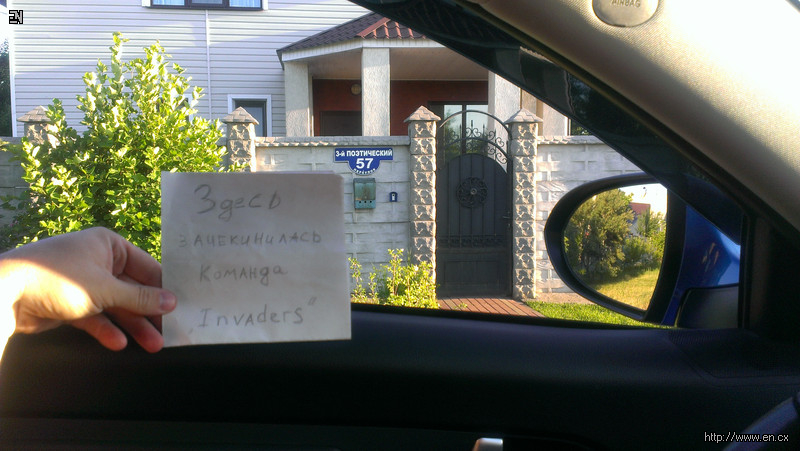 EN
AIRBAG
3-й ПОЭТИЧЕСКИЙ
57
Здесь
зачекинилась
команда
„Invaders"
http://www.en.cx